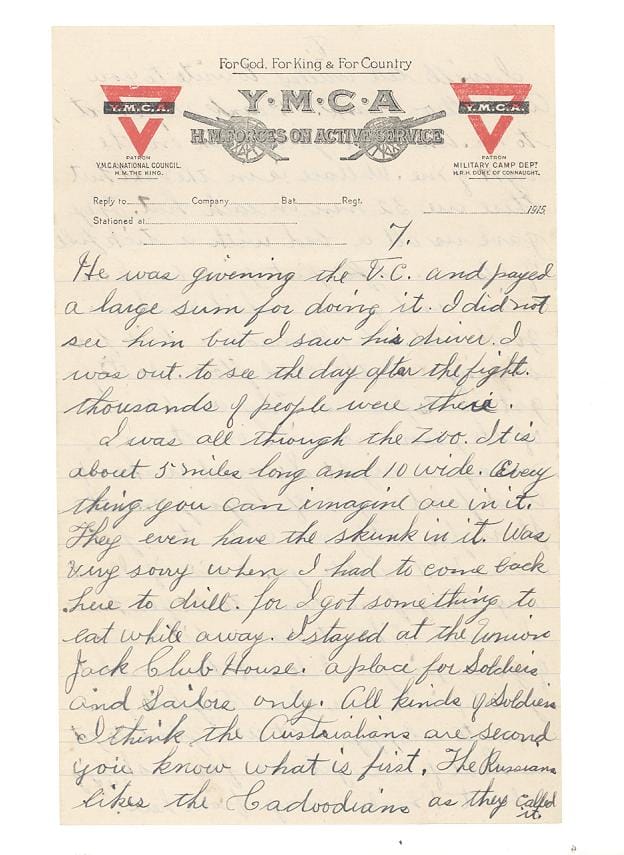 For God, For King & For Country
Y·M·C·A
H.M. FORCES ON ACTIVE SERVICE
Y.M.C.A.
PATRON
Y.M.C.A. NATIONAL COUNCIL.
H.M. THE KING.
Y.M.C.A.
PATRON
MILITARY CAMP DEPT
H.R.H. DUKE OF CONNAUGHT.
Reply to Company Bat. Regt.
Stationed at 1915
7.
He was givening the V.C. and payed
a large sum for doing it. I did not
see him but I saw his driver. I
was out to see the day after the fight.
thousands of people were there.
I was all through the Zoo. It is
about 5 miles long and 10 wide. Every
thing you can imagine are in it.
They even have the skunk in it. Was
very sorry when I had to come back
here to drill. for I got something to
eat while away. I stayed at the Union
Jack Club House. a place for Soldiers
and Sailors only. All kinds of Soldiers
I think the Australians are second
you know what is first. The Russians
likes the Cadoodians as they called
it.